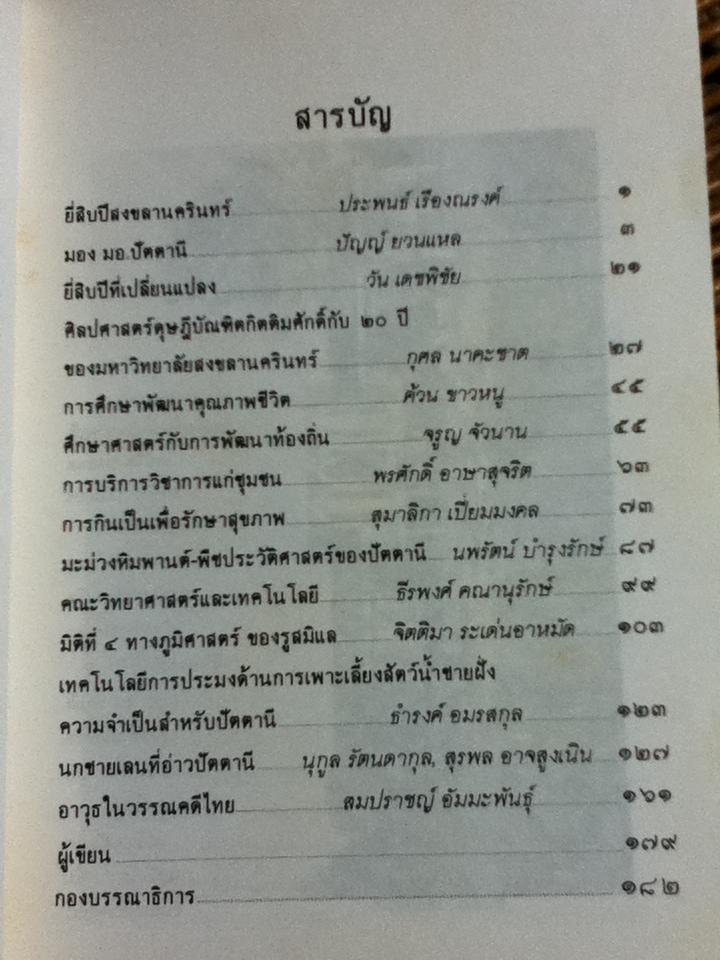 สารบัญ
ยี่สิบปีสงขลานครินทร์ ประพนธ์ เรืองณรงค์ ๑
มอง มอ.ปัตตานี ปัญญ์ ยวนแหล ๓
ยี่สิบปีที่เปลี่ยนแปลง วัน เดชพิชัย ๒๑
ศิลปศาสตร์ดุษฎีบัณฑิตกิตติมศักดิ์กับ ๒๐ ปี
ของมหาวิทยาลัยสงขลานครินทร์ กุศล นาคะชาต ๒๗
การศึกษาพัฒนาคุณภาพชีวิต ค้วน ขาวหนู ๔๕
ศึกษาศาสตร์กับการพัฒนาท้องถิ่น จรูญ จัวนาน ๕๕
การบริการวิชาการแก่ชุมชน พรศักดิ์ อาษาสุจริต ๖๓
การกินเป็นเพื่อรักษาสุขภาพ สุมาลิกา เปี่ยมมงคล ๗๓
มะม่วงหิมพานต์-พืชประวัติศาสตร์ของปัตตานี นพรัตน์ บำรุงรักษ์ ๘๗
คณะวิทยาศาสตร์และเทคโนโลยี ธีรพงศ์ คณานุรักษ์ ๙๙
มิติที่ ๔ ทางภูมิศาสตร์ ของรูสมิแล จิตติมา ระเด่นอาหมัด ๑๐๓
เทคโนโลยีการประมงด้านการเพาะเลี้ยงสัตว์น้ำชายฝั่ง
ความจำเป็นสำหรับปัตตานี ธำรงค์ อมรสกุล ๑๒๓
นกชายเลนที่อ่าวปัตตานี นุกูล รัตนดากุล, สุรพล อาจสูงเนิน ๑๒๗
อาวุธในวรรณคดีไทย สมปราชญ์ อัมมะพันธุ์ ๑๖๑
ผู้เขียน ๑๗๙
กองบรรณาธิการ ๑๘๒